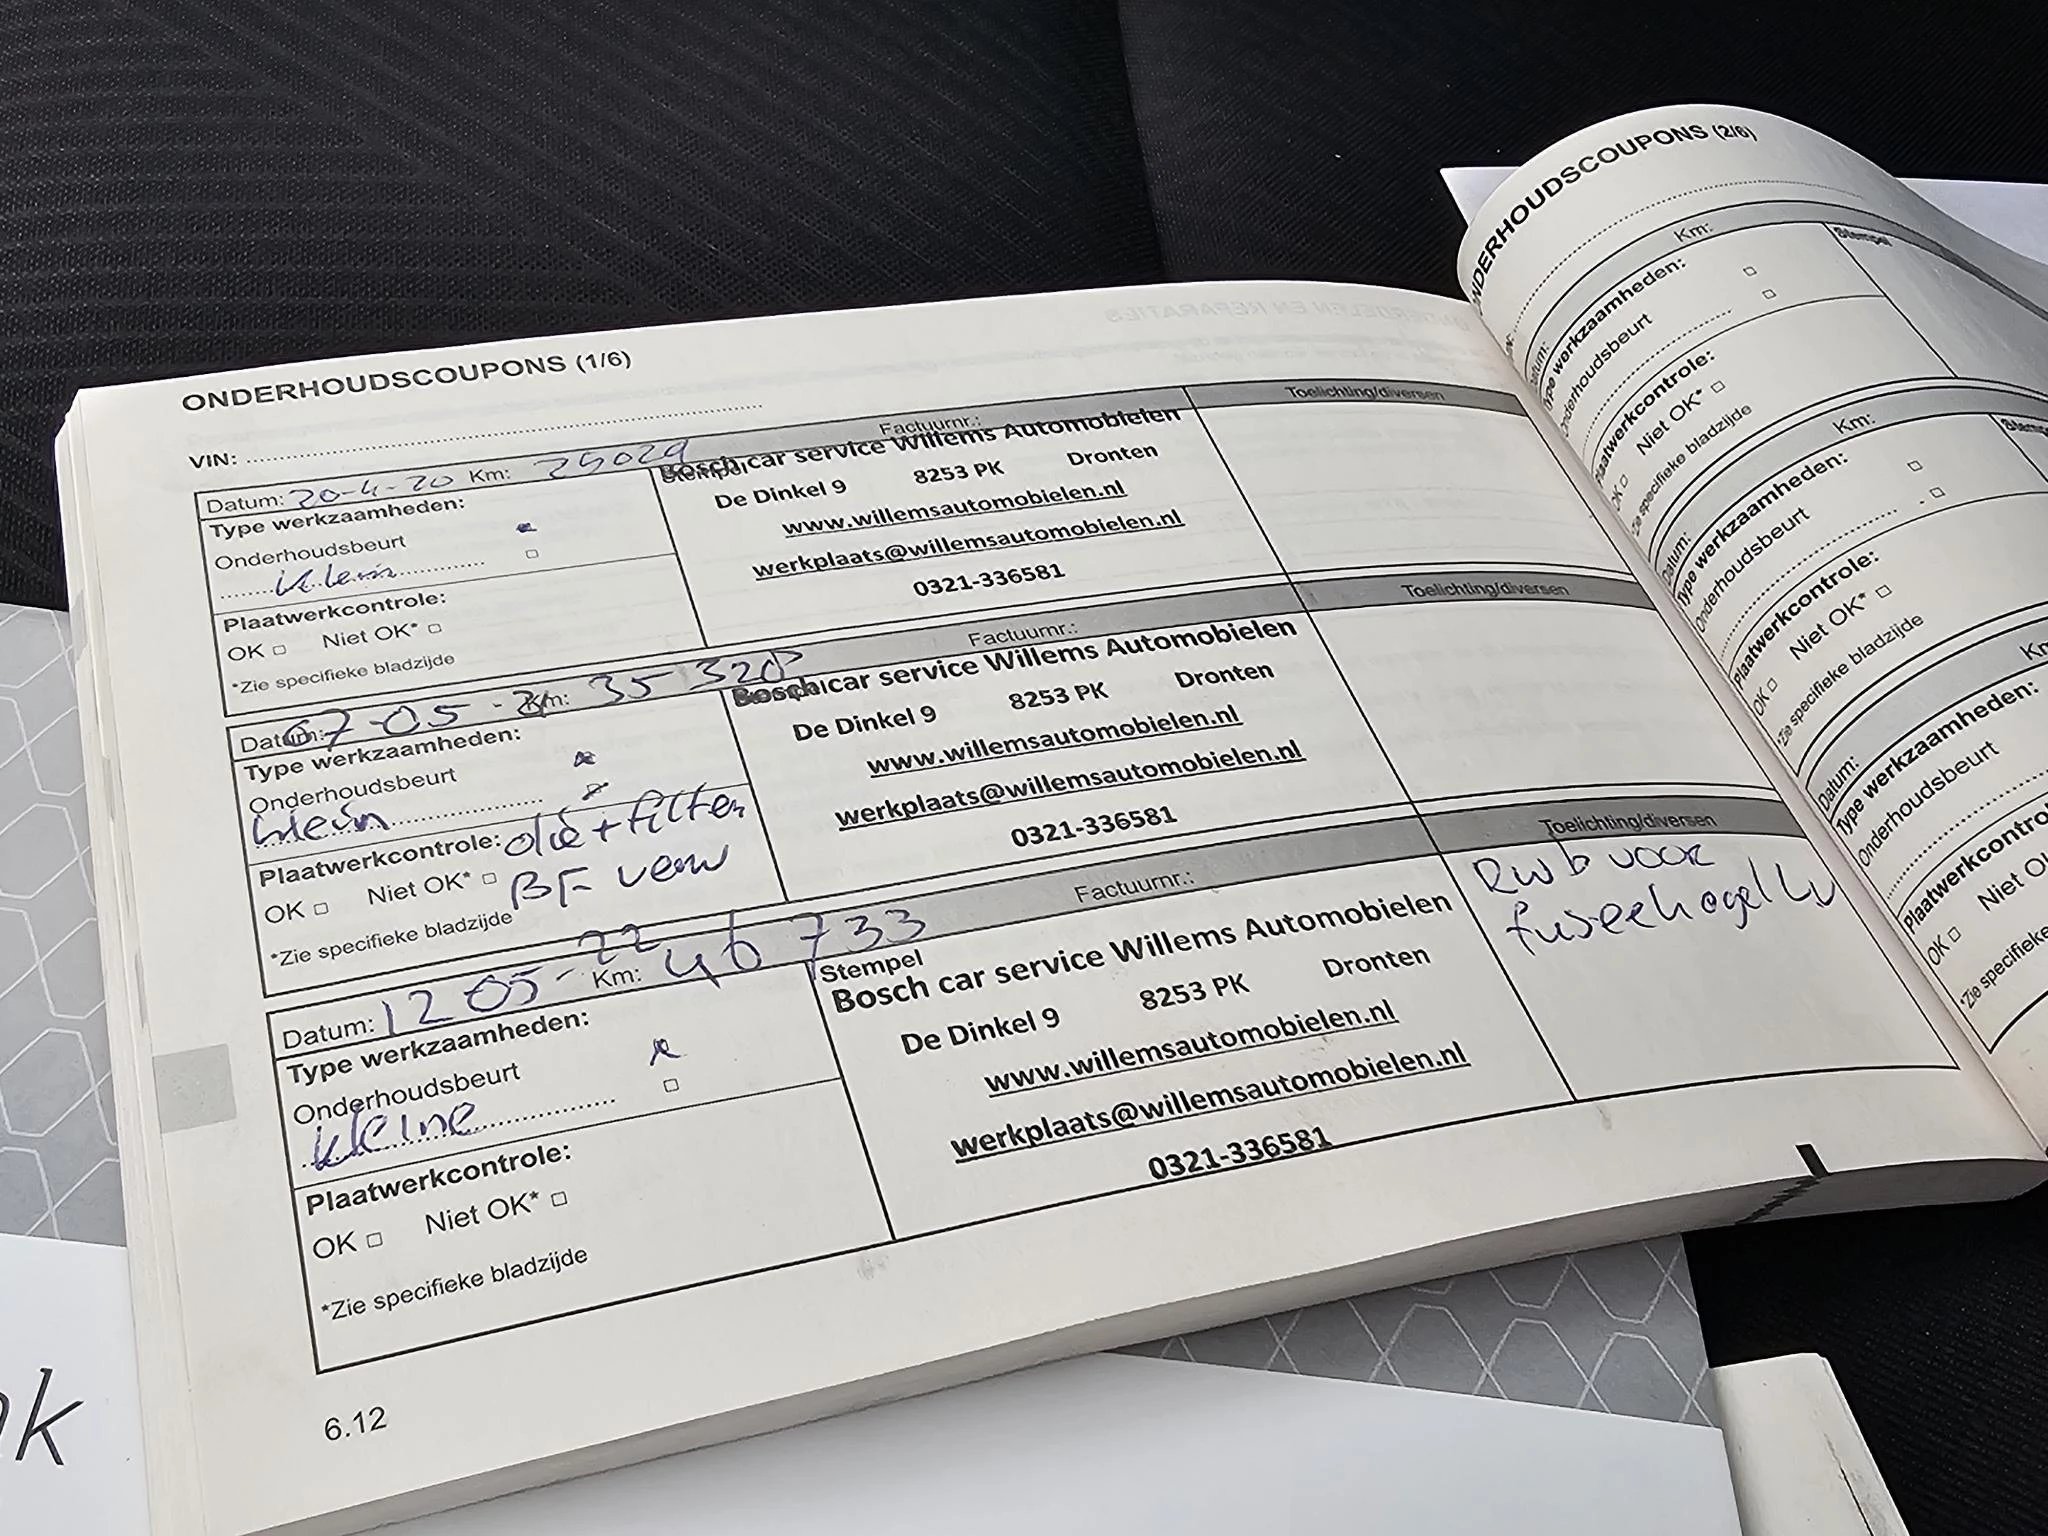 ONDERHOUDSCOUPONS (1/6)
VIN:
Datum: 20-4-20 Km: 25029
Factuurnr.:
Toelichting/diversen
Type werkzaamheden:
Onderhoudsbeurt
klein
Plaatwerkcontrole:
OK □ Niet OK* □
*Zie specifieke bladzijde
Stempel
Bosch car service Willems Automobielen
De Dinkel 9 8253 PK Dronten
www.willemsautomobielen.nl
werkplaats@willemsautomobielen.nl
0321-336581
Datum: 07-05-21 Km: 35320
Factuurnr.:
Toelichting/diversen
Type werkzaamheden:
Onderhoudsbeurt
klein
Plaatwerkcontrole: olie + filter
OK □ Niet OK* □ BF verv
*Zie specifieke bladzijde
Bosch car service Willems Automobielen
De Dinkel 9 8253 PK Dronten
www.willemsautomobielen.nl
werkplaats@willemsautomobielen.nl
0321-336581
Datum: 12 05-22 Km: 46733
Factuurnr.:
Toelichting/diversen
Type werkzaamheden:
Onderhoudsbeurt
kleine
Plaatwerkcontrole:
OK □ Niet OK* □
*Zie specifieke bladzijde
Stempel
Bosch car service Willems Automobielen
De Dinkel 9 8253 PK Dronten
www.willemsautomobielen.nl
werkplaats@willemsautomobielen.nl
0321-336581
RWb voor
fuseekogel LV
6.12
ONDERHOUDSCOUPONS (2/6)
Km:
Stempel
Datum:
Type werkzaamheden:
Onderhoudsbeurt
Plaatwerkcontrole:
OK □ Niet OK* □
*Zie specifieke bladzijde
Km:
Datum:
Type werkzaamheden:
Onderhoudsbeurt
Plaatwerkcontrole:
OK □ Niet OK* □
*Zie specifieke bladzijde
Datum:
Type werkzaamheden:
Onderhoudsbeurt
OK □